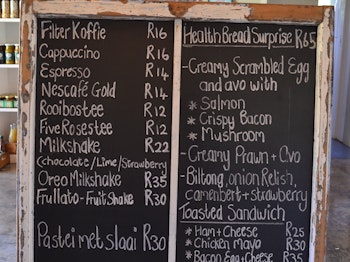 Filter Koffie R16
Cappuccino R16
Espresso R14
Nescafé Gold R14
Rooibostee R12
Five Rosestee R12
Milkshake R22
(Chocolate/Lime/Strawberry
Oreo Milkshake R35
Frullato-Fruit Shake R30
Pastei met slaai R30
Health Bread Surprise R65
-Creamy Scrambled Egg
and avo with
* Salmon
* Crispy Bacon
* Mushroom
-Creamy Prawn + Cvo
-Biltong, onion Relish,
camenbert + strawberry
Toasted Sandwich
* Ham + Cheese R25
* Chicken mayo R30
* Bacon Egg + Cheese R35